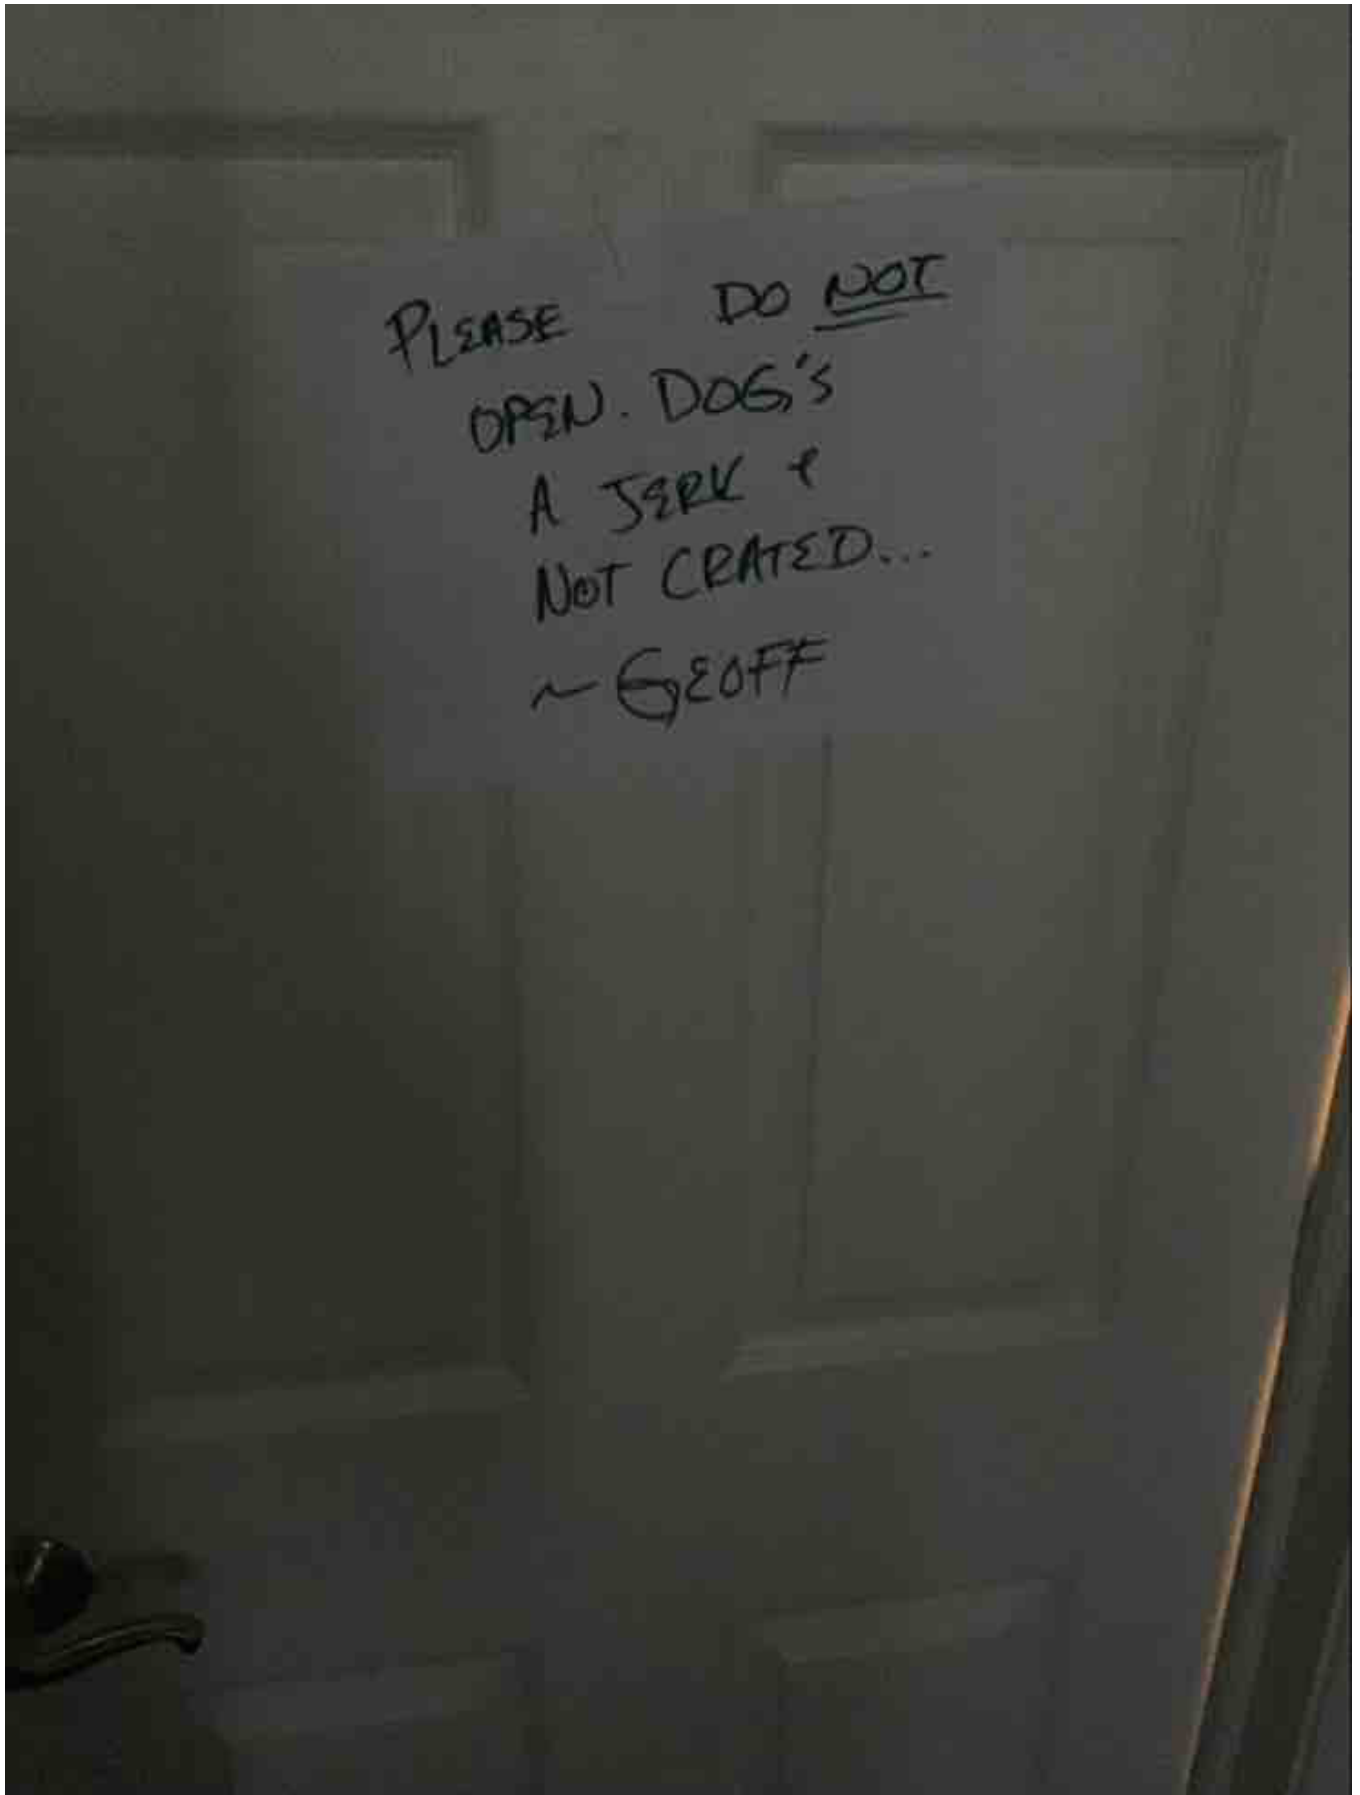 PLEASE DO NOT
OPEN. DOG'S
A JERK &
NOT CRATED...
~ GEOFF